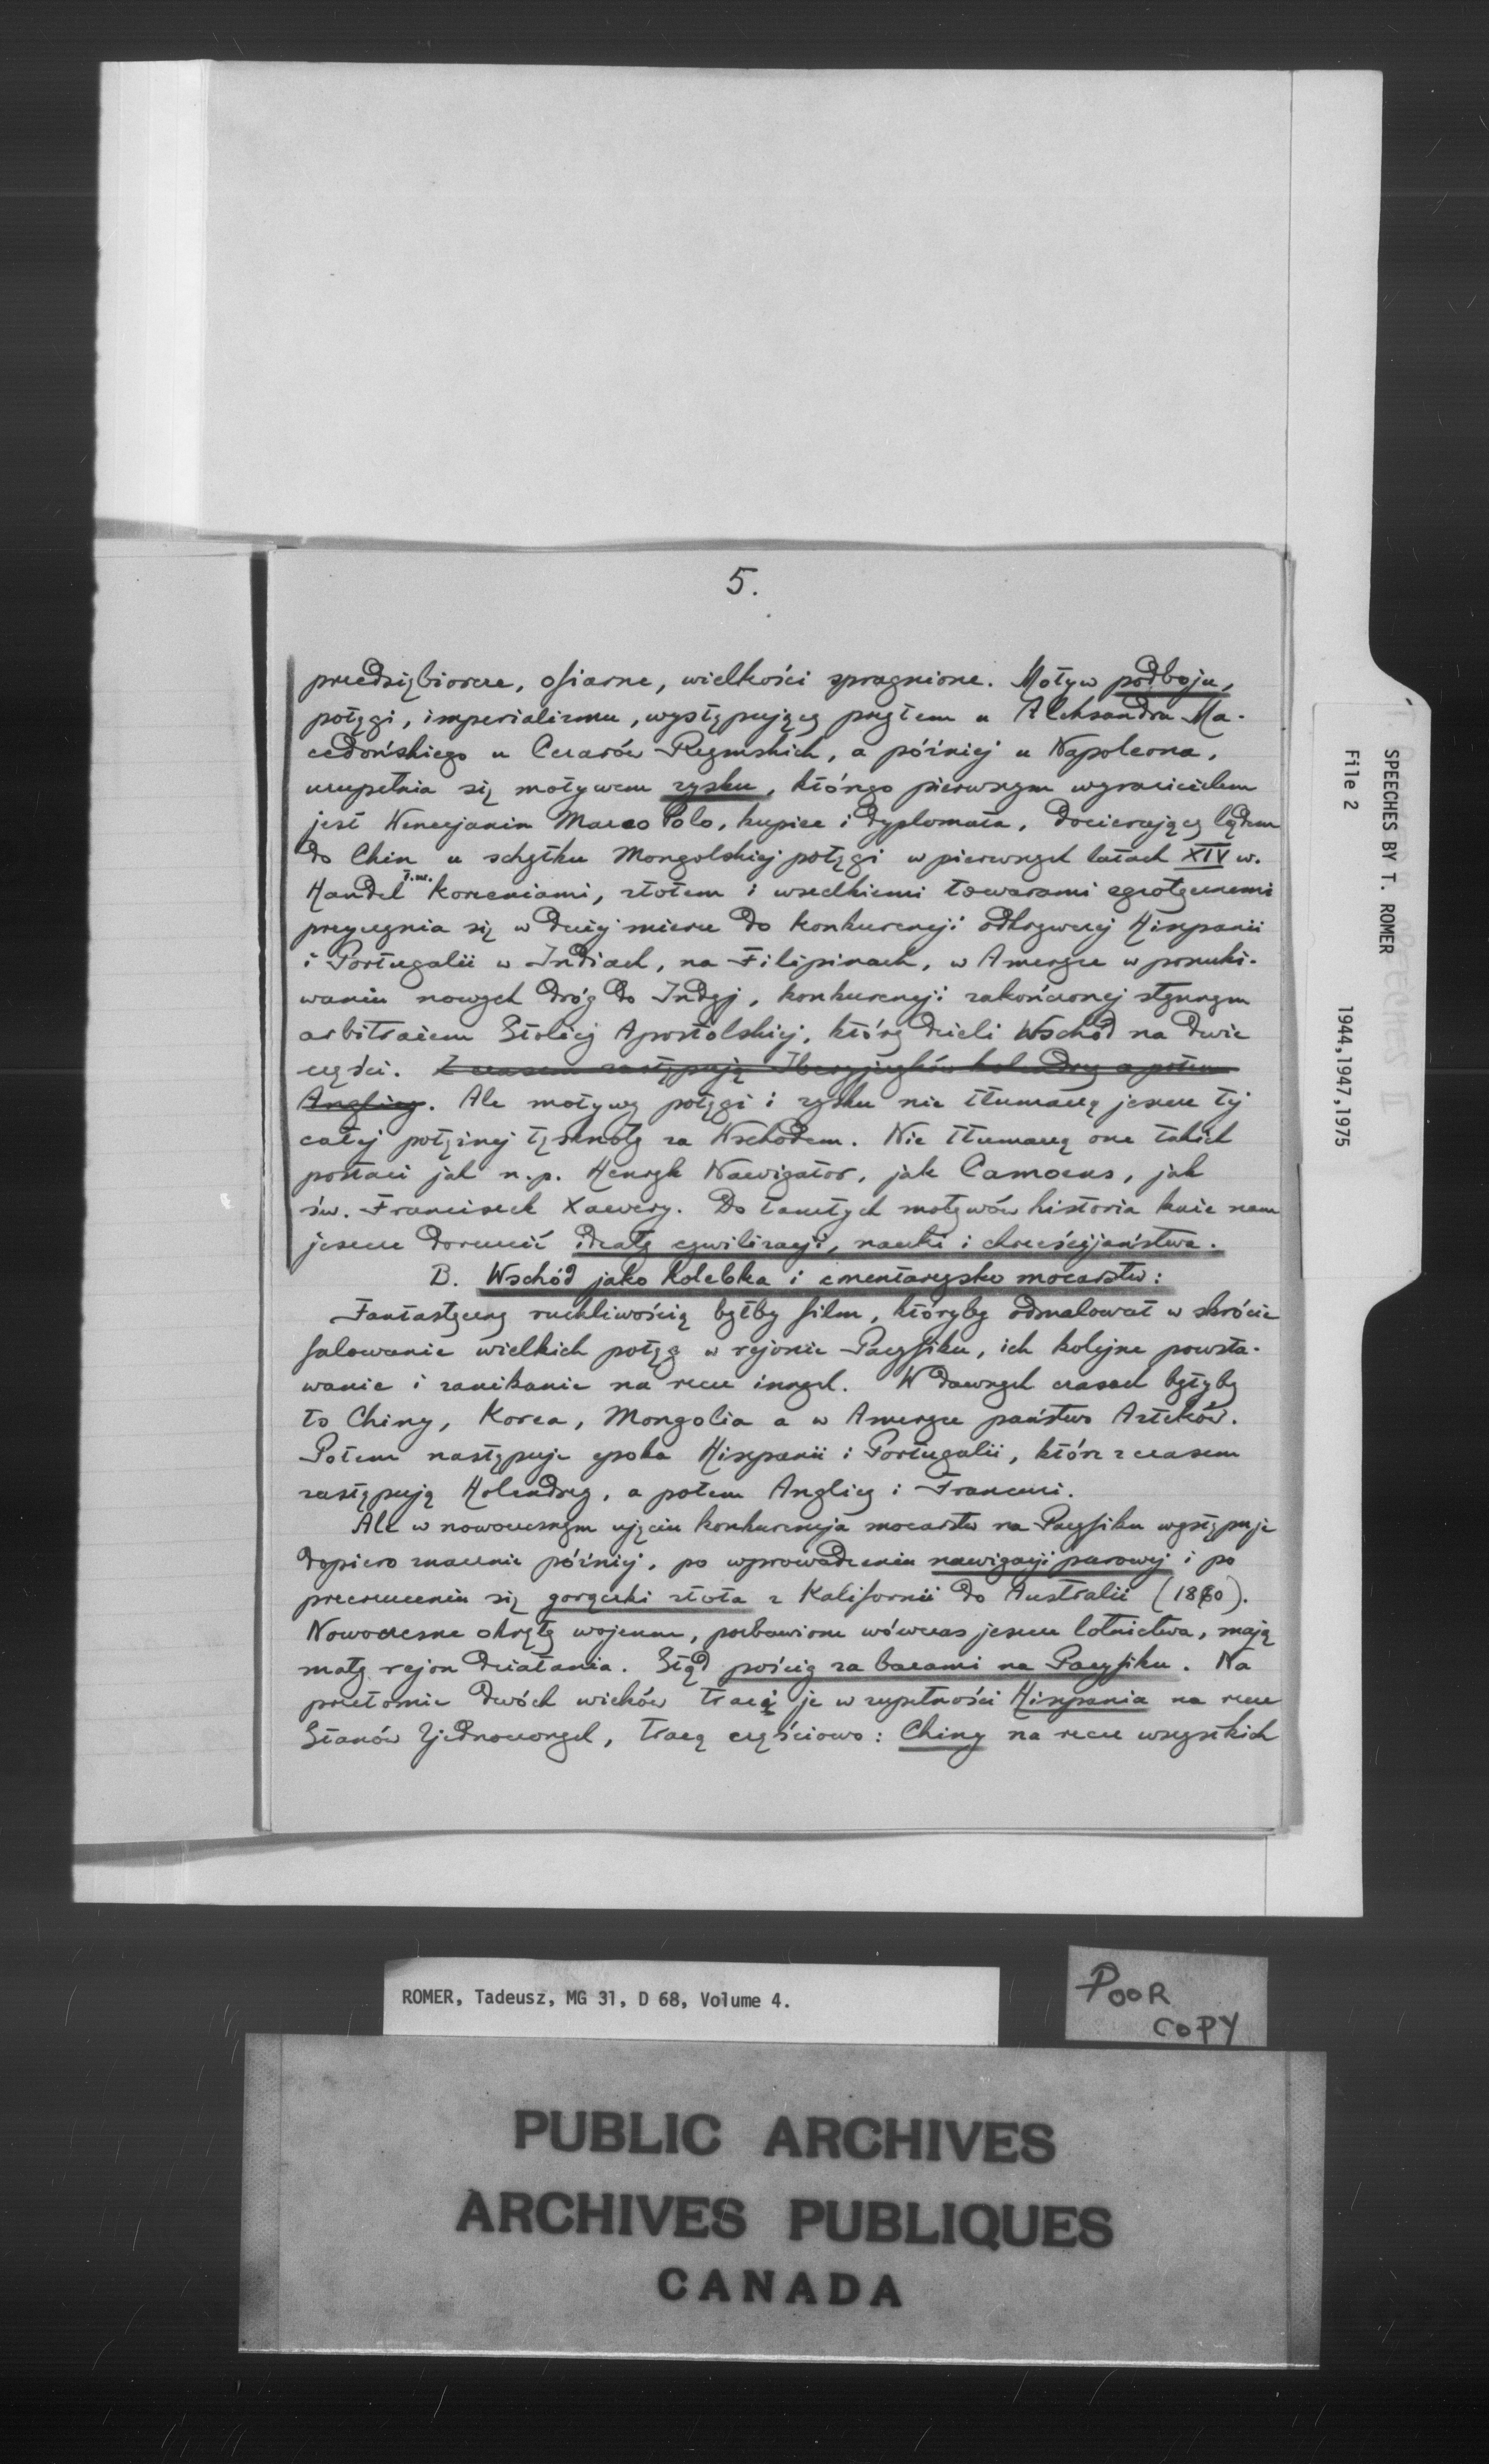 5.
przedsiębiorcze, ofiarne, wielkości spragnione. Motyw podboju,
potęgi, imperializmu, występujący przytem u Aleksandra Ma-
cedońskiego u Cezarów Rzymskich, a później u Napoleona,
uzupełnia się motywem zysku, którego pierwszym wyrazicielem
jest Wenecjanin Marco Polo, kupiec i dyplomata, docierający lądem
do Chin u schyłku Mongolskiej potęgi w pierwszych latach XIV w.
Handel t.zw. korzeniami, złotem i wszelkiemi towarami egzotycznemi
przyczynia się w dużej mierze do konkurencji odkrywczej Hiszpanii
i Portugalii w Indiach, na Filipinach, w Ameryce w poszuki-
waniu nowych dróg do Indyj, konkurencji zakończonej słynnym
arbitrażem Stolicy Apostolskiej, który dzieli Wschód na dwie
części. Z czasem zastępują Iberyjczyków holendrzy a potem
Anglicy. Ale motywy potęgi i zysku nie tłumaczą jeszcze tej
całej potężnej tęsknoty za Wschodem. Nie tłumaczą one takich
postaci jak n.p. Henryk Nawigator, jak Camoens, jak
św. Franciszek Xawery. Do tamtych motywów historia każe nam
jeszcze dorzucić ideały cywilizacji, nauki i chrześcijaństwa.
B. Wschód jako kolebka i cmentarzysko mocarstw:
Fantastyczny ruchliwością byłby film, któryby odmalował w skrócie
falowanie wielkich potęg w rejonie Pacyfiku, ich kolejne powsta-
wanie i zanikanie na rzecz innych. W dawnych czasach byłyby
to Chiny, Korea, Mongolia a w Ameryce państwo Azteków.
Potem następuje epoka Hiszpanii i Portugalii, które z czasem
zastępują Holendrzy, a potem Anglicy i Francuzi.
Ale w nowoczesnym ujęciu konkurencja mocarstw na Pacyfiku występuje
dopiero znacznie później, po wprowadzeniu nawigacji parowej i po
przerzuceniu się gorączki złota z Kalifornii do Australii (1860).
Nowoczesne okręty wojenne, pozbawione wówczas jeszcze lotnictwa, mają
mały rejon działania. Stąd pościg za bazami na Pacyfiku. Na
przełomie dwóch wieków traci je w zupełności Hiszpania na rzecz
Stanów Zjednoczonych, tracą częściowo: Chiny na rzecz wszystkich
SPEECHES BY T. ROMER
File 2 1944,1947,1975
ROMER, Tadeusz, MG 31, D 68, Volume 4.
POOR
COPY
PUBLIC ARCHIVES
ARCHIVES PUBLIQUES
CANADA